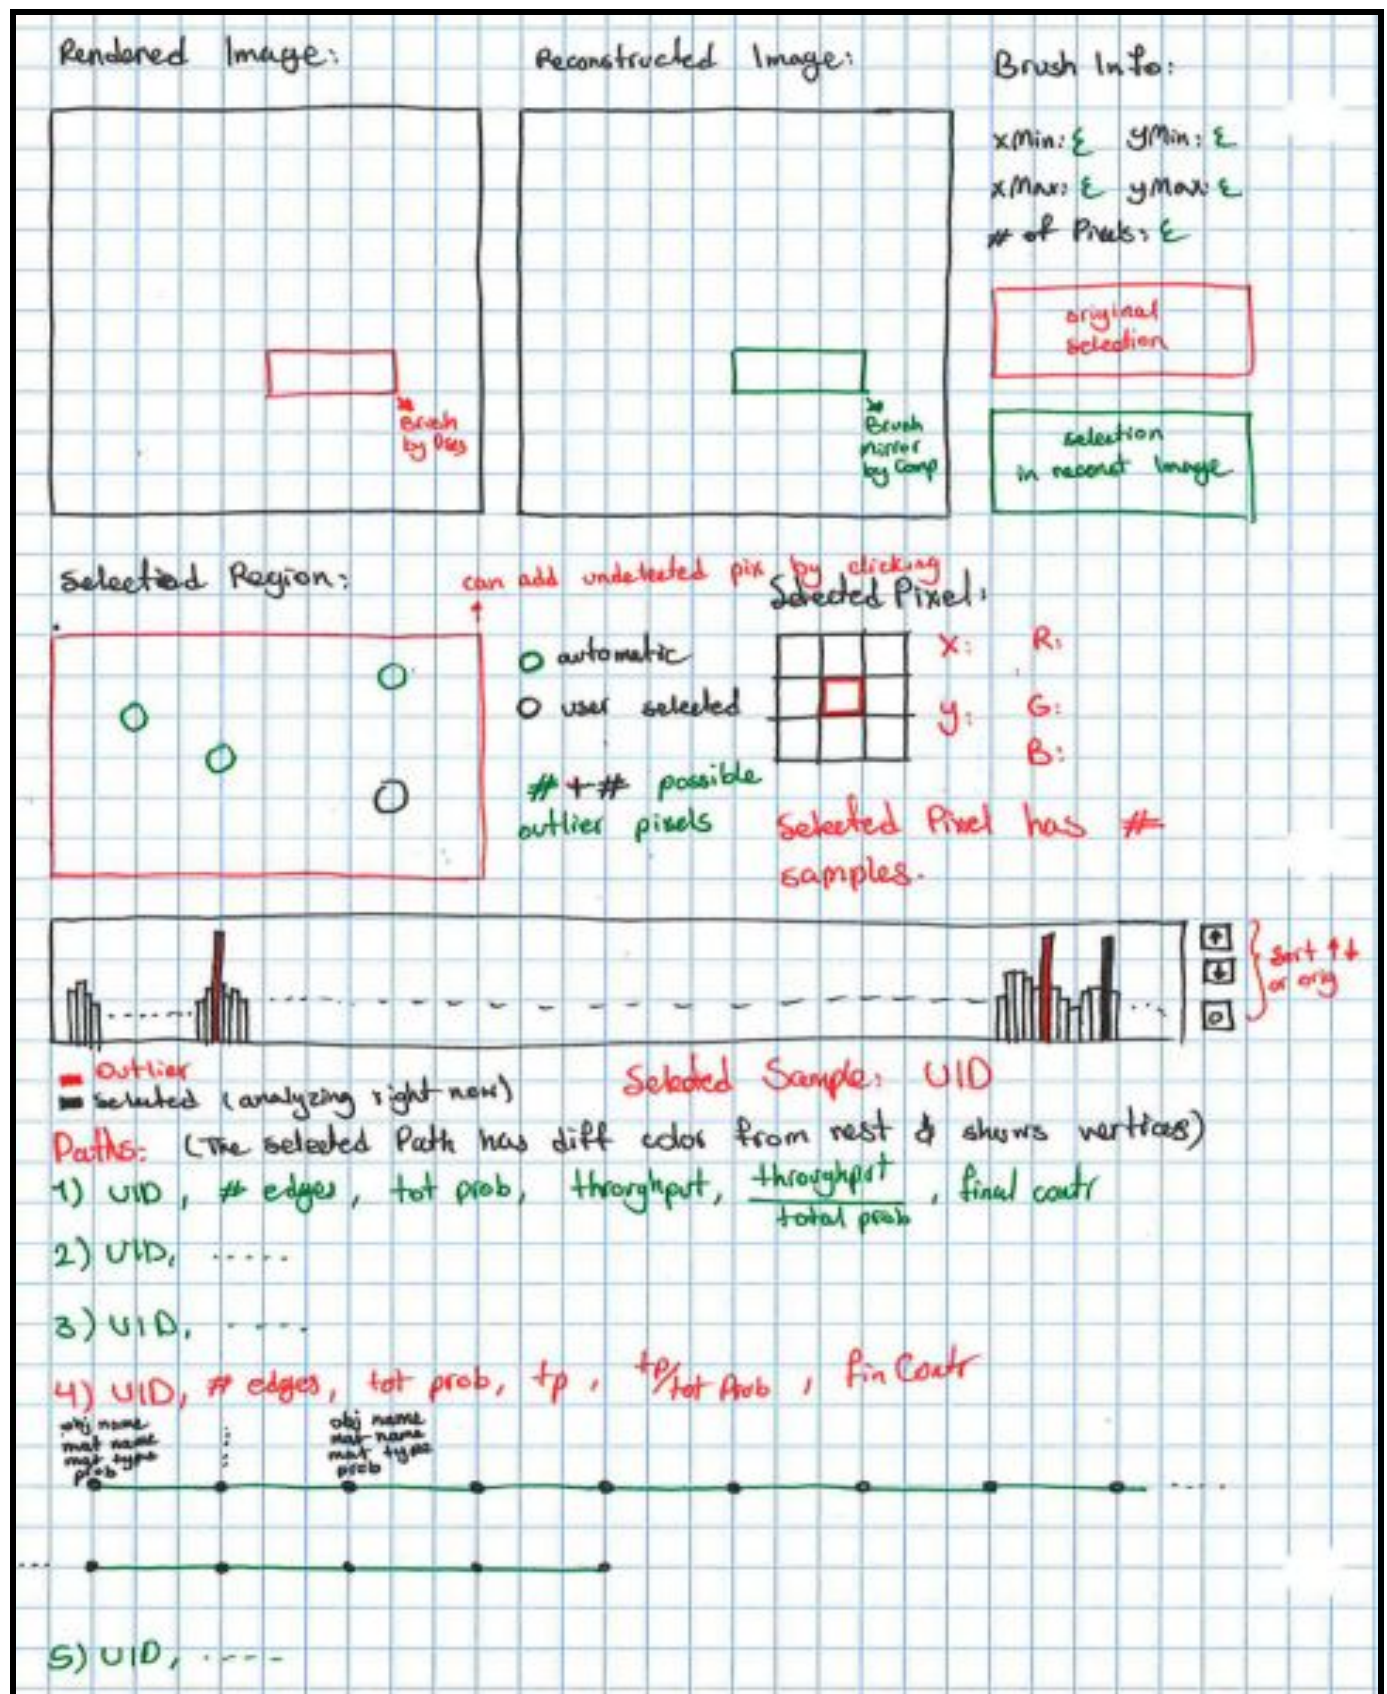 Rendered Image:
Reconstructed Image:
Brush Info:
xMin: ε yMin: ε
xMax: ε yMax: ε
# of Pixels: ε
original
selection
selection
in reconst Image
Brush
by
Brush
mirror
by Comp
Selected Region:
can add undetected pix by clicking
automatic
user selected
#+# possible
outlier pixels
Selected Pixel:
X: R:
y: G:
B:
Selected Pixel has #
samples.
sort ↑↓
or orig
Outlier
selected (analyzing right now)
Selected Sample: UID
Paths: (The selected Path has diff color from rest & shows vertices)
1) UID, # edges, tot prob, throughput, throughput / total prob, final contr
2) UID, .....
3) UID, .....
4) UID, # edges, tot prob, tp, tp/tot Prob, fin Contr
obj name
mat name
mat type
prob
obj name
mat name
mat type
prob
5) UID, ----